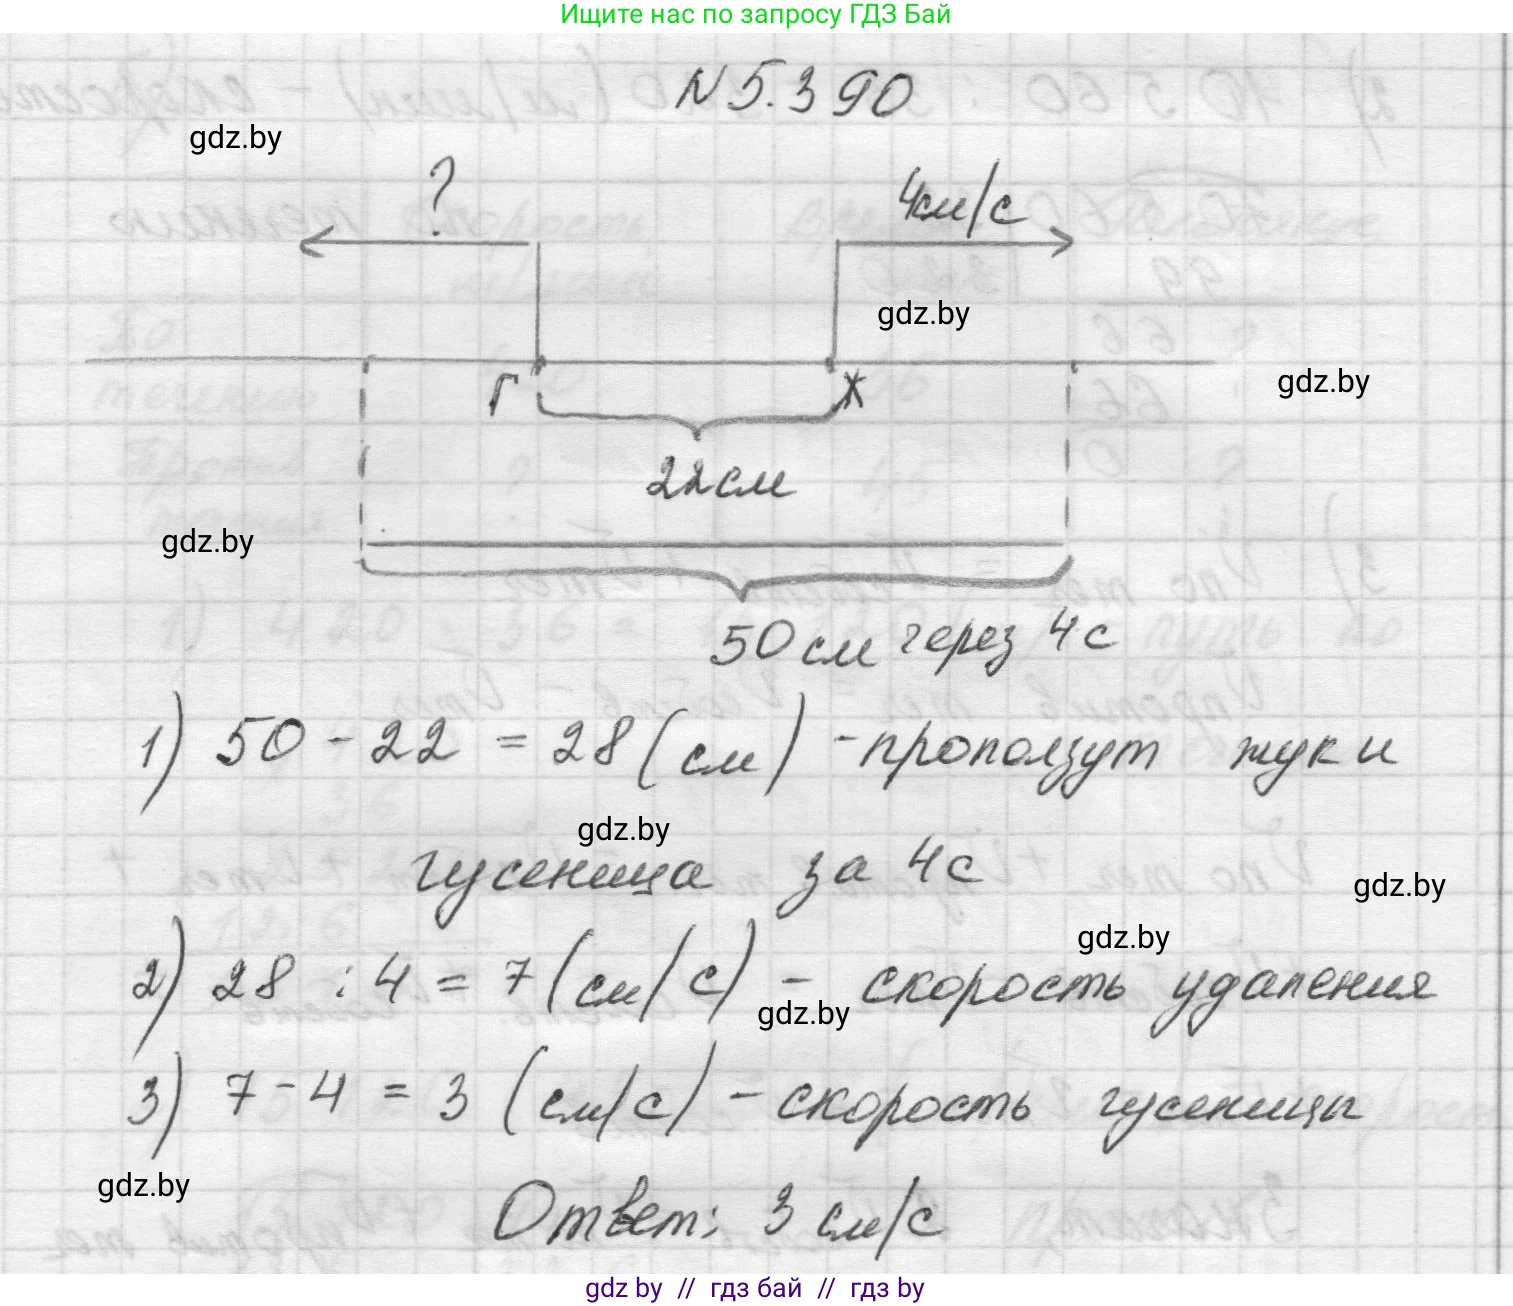 Ищите нас по запросу ГДЗ Бай
N 5.390
gdz.by
?
4см/с
gdz.by
gdz.by
Г
Ж
22см
gdz.by
50 см через 4 с
1) 50 - 22 = 28 (см) - проползут жук и
gdz.by
гусеница за 4 с
gdz.by
gdz.by
2) 28 : 4 = 7 (см/с) - скорость удаления
gdz.by
3) 7 - 4 = 3 (см/с) - скорость гусеницы
gdz.by
Ответ: 3 см/с
gdz by // гдз бай // гдз by